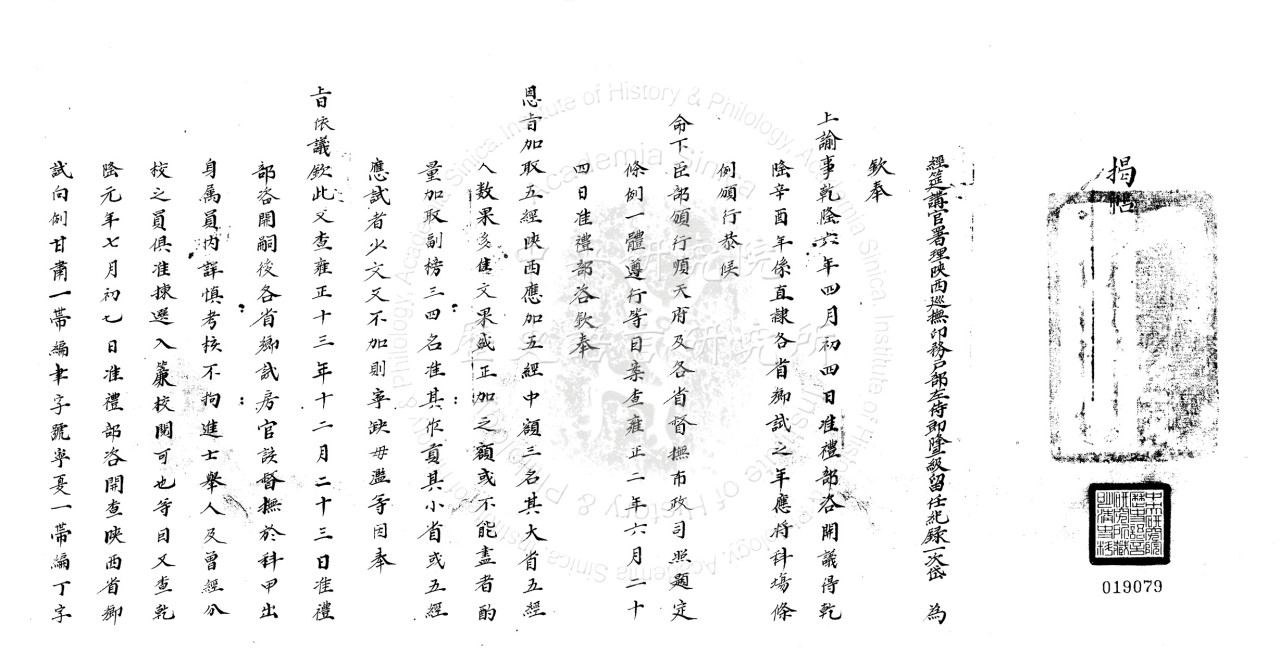 揭帖
經筵講官署理陝西巡撫印務戶部左侍郎隨級留任紀錄一次岱 為
欽奉
上諭事乾隆六年四月初四日准禮部咨開議得乾
隆辛酉年係直隸各省鄉試之年應將科場條
例頒行恭候
命下臣部頒行順天府及各省督撫布政司照題定
條例一體遵行等因案查雍正二年六月二十
四日准禮部咨欽奉
恩旨加取五經陝西應加五經中額三名其大省五經
人数果多佳文果或正加之額或不能盡者酌
量加取副榜三四名准其作貢其小省或五經
應試者少文又不加則寧缺毋濫等因奉
旨依議欽此又查雍正十三年十二月二十三日准禮
部咨開嗣後各省鄉試房官該督撫於科甲出
身屬員內詳慎考核不拘進士舉人及曾經分
校之員俱准揀選入簾校閱可也等因又查乾
隆元年七月初七日准禮部咨開查陝西省鄉
試向例甘肅一帶編聿字號寧夏一帶編丁字
中央研究院歷史語言研究所藏明清史料
019079
中央研究院
歷史語言研究所
Institute of History & Philology, Academia Sinica